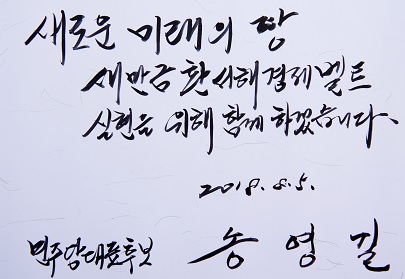 새로운 미래의 땅
새만금 환서해경제벨트
실현을 위해 함께 하겠습니다.
2018. 8. 5.
민주당대표후보 송영길